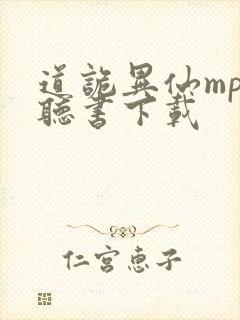 道詭異仙mp
聽書下載
仁宮惠子